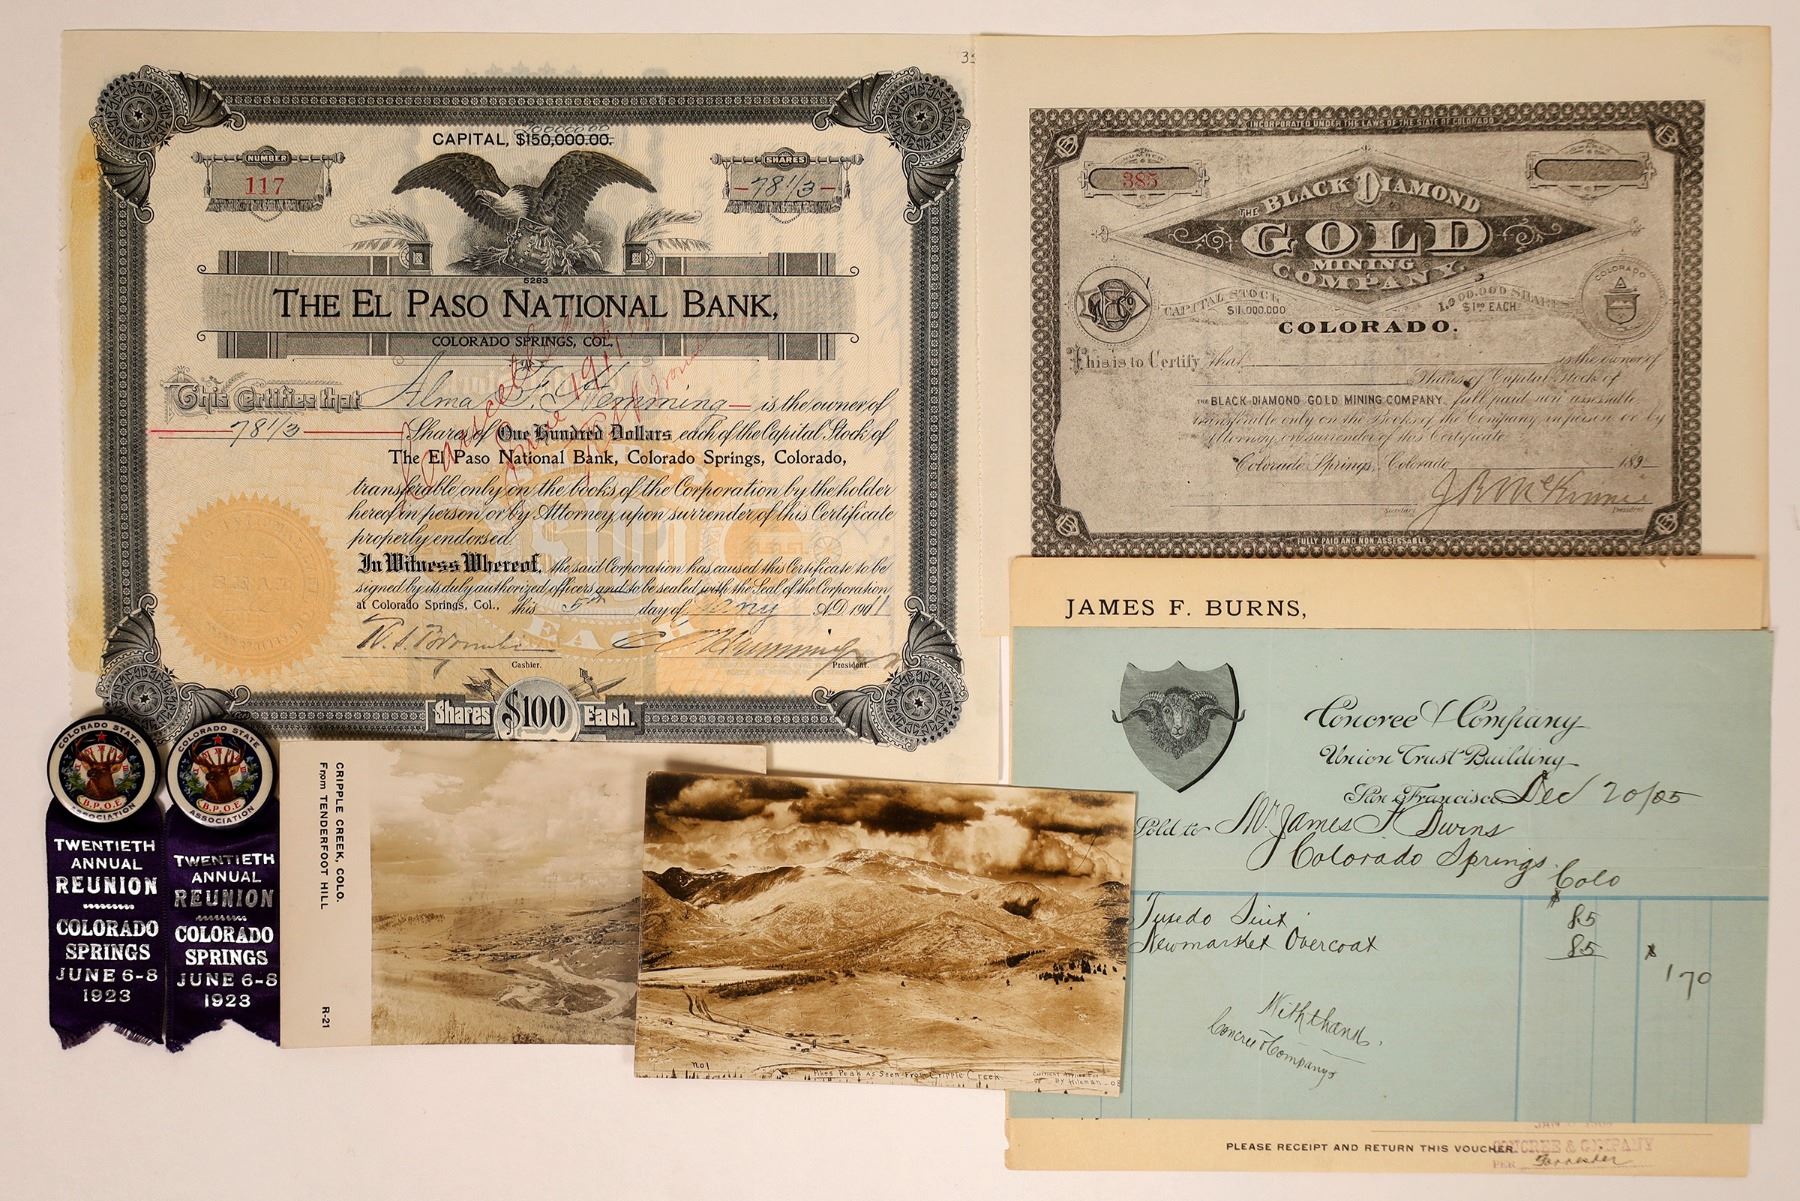 CAPITAL, $150,000.00.
NUMBER
117
SHARES
-78 1/3-
5283
THE EL PASO NATIONAL BANK,
COLORADO SPRINGS, COL.
This Certifies that Alma F. Hemming — is the owner of
78 1/3 Shares of One Hundred Dollars each of the Capital Stock of
The El Paso National Bank, Colorado Springs, Colorado,
transferable only on the books of the Corporation by the holder
hereof in person or by Attorney upon surrender of this Certificate
properly endorsed.
In Witness Whereof, the said Corporation has caused this Certificate to be
signed by its duly authorized officers and to be sealed with the Seal of the Corporation
at Colorado Springs, Col., this 5th day of A.D. 1901
Cashier.
President.
SEAL
EACH
Shares $100 Each.
INCORPORATED UNDER THE LAWS OF THE STATE OF COLORADO
NUMBER
385
THE BLACK DIAMOND
GOLD
MINING
COMPANY.
COLORADO
CAPITAL STOCK
$1,000,000
1,000,000 SHARES
$1.00 EACH
COLORADO.
This is to Certify that is the owner of
Shares of Capital Stock of
THE BLACK DIAMOND GOLD MINING COMPANY, full paid non assessable
transferable only on the Books of the Company in person or by
Attorney on surrender of this Certificate
Colorado Springs, Colorado 189
Secretary
President
FULLY PAID AND NON ASSESSABLE
JAMES F. BURNS,
Concree & Company
Union Trust Building
San Francisco Dec 20/05
Sold to Mr James F Burns
Colorado Springs
Colo
Tuxedo Suit $85
Newmarket Overcoat 85 $170
With thanks.
Concree & Company
PLEASE RECEIPT AND RETURN THIS VOUCHER
CONCREE & COMPANY
PER Forrester
COLORADO STATE
B.P.O.E
ASSOCIATION
TWENTIETH
ANNUAL
REUNION
COLORADO
SPRINGS
JUNE 6-8
1923
COLORADO STATE
B.P.O.E
ASSOCIATION
TWENTIETH
ANNUAL
REUNION
COLORADO
SPRINGS
JUNE 6-8
1923
CRIPPLE CREEK, COLO.
From TENDERFOOT HILL
R-21
No1
Pikes Peak As Seen From Cripple Creek
Copyright Applied For
By Hileman - 08